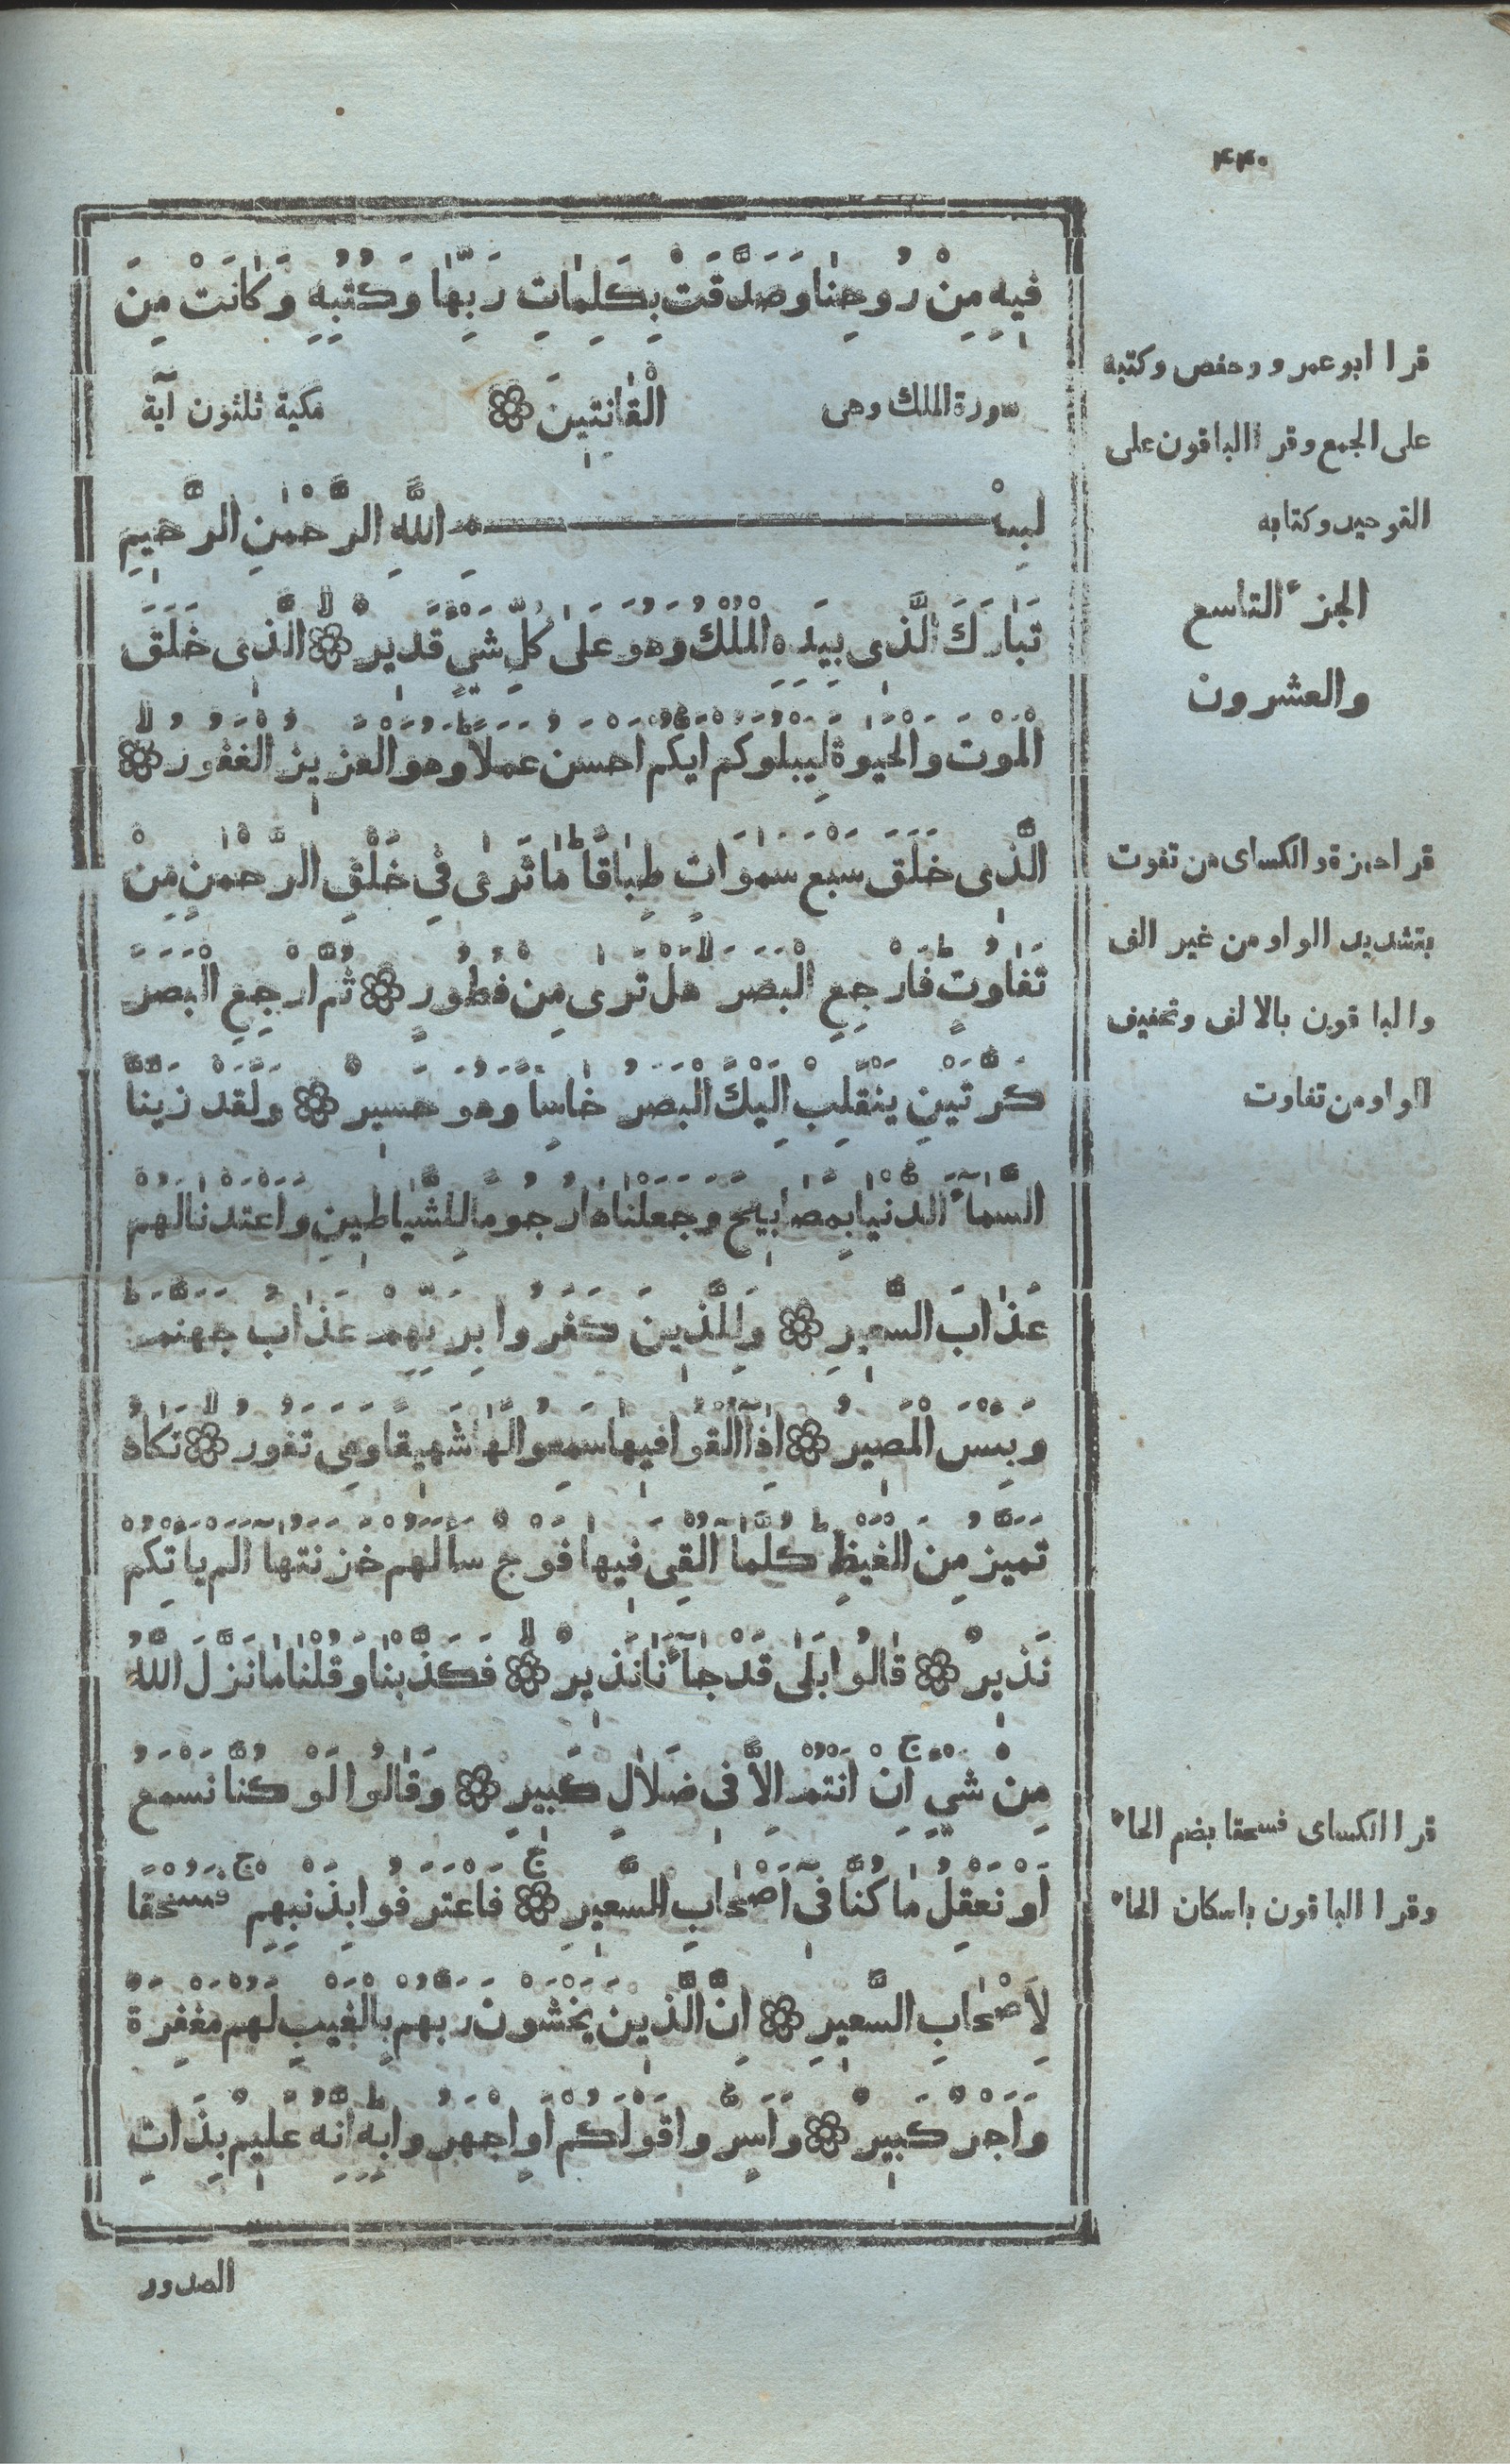 ۴۴۰
فِيهِ مِنْ رُوحِنَا وَصَدَّقَتْ بِكَلِمَاتِ رَبِّهَا وَكُتُبِهِ وَكَانَتْ مِنَ
سورة الملك وهى الْقَانِتِينَ مكية ثلثون آية
بِسْمِ اللَّهِ الرَّحْمٰنِ الرَّحِيمِ
تَبَارَكَ الَّذِى بِيَدِهِ الْمُلْكُ وَهُوَ عَلَىٰ كُلِّ شَىْءٍ قَدِيرٌ الَّذِى خَلَقَ
الْمَوْتَ وَالْحَيٰوةَ لِيَبْلُوَكُمْ اَيُّكُمْ اَحْسَنُ عَمَلًا ط وَهُوَ الْعَزِيزُ الْغَفُورُ لا
الَّذِى خَلَقَ سَبْعَ سَمٰوَاتٍ طِبَاقًا ط مَا تَرَىٰ فِى خَلْقِ الرَّحْمٰنِ مِنْ
تَفَاوُتٍ ط فَارْجِعِ الْبَصَرَ لا هَلْ تَرَىٰ مِنْ فُطُورٍ ثُمَّ ارْجِعِ الْبَصَرَ
كَرَّتَيْنِ يَنْقَلِبْ اِلَيْكَ الْبَصَرُ خَاسِئًا وَهُوَ حَسِيرٌ وَلَقَدْ زَيَّنَّا
السَّمَآءَ الدُّنْيَا بِمَصَابِيحَ وَجَعَلْنَاهَا رُجُومًا لِلشَّيَاطِينِ وَاَعْتَدْنَا لَهُمْ
عَذَابَ السَّعِيرِ وَلِلَّذِينَ كَفَرُوا بِرَبِّهِمْ عَذَابُ جَهَنَّمَ ط
وَبِئْسَ الْمَصِيرُ اِذَآ اُلْقُوا فِيهَا سَمِعُوا لَهَا شَهِيقًا وَهِىَ تَفُورُ لا تَكَادُ
تَمَيَّزُ مِنَ الْغَيْظِ ط كُلَّمَآ اُلْقِىَ فِيهَا فَوْجٌ سَأَلَهُمْ خَزَنَتُهَآ اَلَمْ يَأْتِكُمْ
نَذِيرٌ قَالُوا بَلَىٰ قَدْ جَآءَنَا نَذِيرٌ لا فَكَذَّبْنَا وَقُلْنَا مَا نَزَّلَ اللَّهُ
مِنْ شَىْءٍ ج اِنْ اَنْتُمْ اِلَّا فِى ضَلَالٍ كَبِيرٍ وَقَالُوا لَوْ كُنَّا نَسْمَعُ
اَوْ نَعْقِلُ مَا كُنَّا فِىٓ اَصْحَابِ السَّعِيرِ ج فَاعْتَرَفُوا بِذَنْبِهِمْ ج فَسُحْقًا
لِاَصْحَابِ السَّعِيرِ اِنَّ الَّذِينَ يَخْشَوْنَ رَبَّهُمْ بِالْغَيْبِ لَهُمْ مَغْفِرَةٌ
وَاَجْرٌ كَبِيرٌ وَاَسِرُّوا قَوْلَكُمْ اَوِ اجْهَرُوا بِهِ ط اِنَّهُ عَلِيمٌ بِذَاتِ
الصدور
قرا ابو عمرو وحفص وكتبه
على الجمع وقرا الباقون على
التوحيد وكتابه
الجزء التاسع
والعشرون
قرا حمزة والكساى من تفوت
بتشديد الواو من غير الف
والباقون بالالف وتخفيف
الواو من تفاوت
قرا الكساى فسحقا بضم الحاء
وقرا الباقون باسكان الحاء